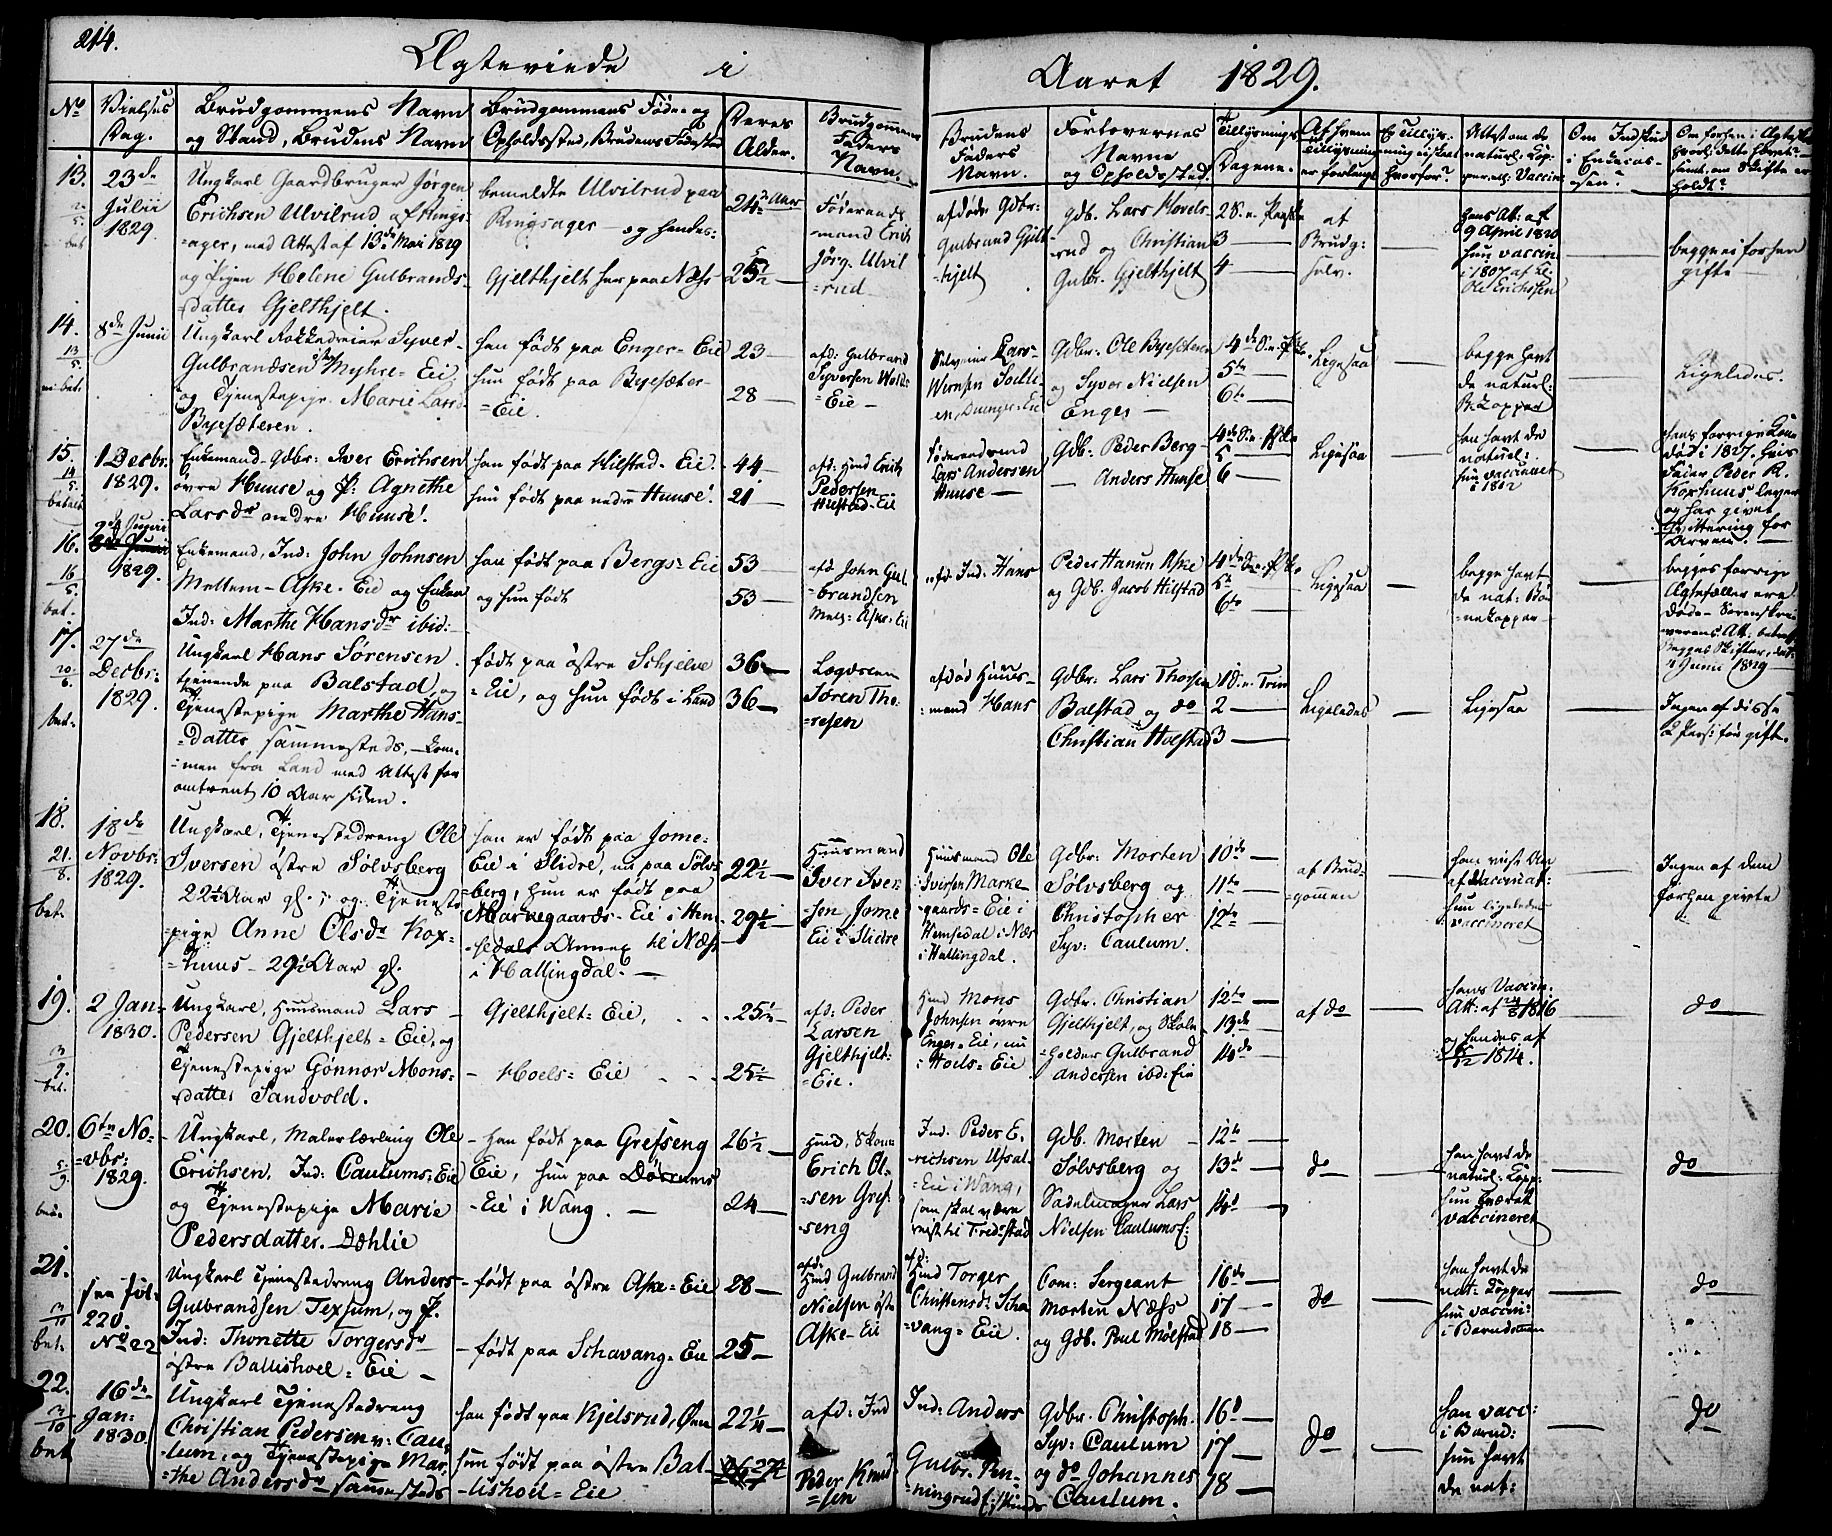 214.
Ægteviede i Aaret 1829.
No
Vielses Dag.
Brudgommens Navn og Stand, Brudens Navn
Brudgommens Føde- og Opholdssted, Brudens Fødested
Deres Alder.
Brudgommens Faders Navn.
Brudens Faders Navn.
Forlovernes Navne og Opholdssted
Tillysnings Dagene.
Af hvem Tillysning er forlangt
Om Indskud i Enkecassen?
13.
23de Julii 1829.
Ungkarl Gaardbruger Jørgen
Erichsen Ulvilrud af Rings-
=ager, med Attest af 13de Mai 1829
og Pigen Helene Gulbrands-
=datter Gjelthjelt.
bemeldte Ulvilrud paa
Ringsager - og hendes:
Gjelthjelt her paa Næss
24 Aar
25½
Føderaads-
mand Erich
Jørg. Ulvil
=rud
afdøde Gdbr:
Gulbrand Gjelt
=hjelt
Gdb. Lars Hovels-
=rud og Christian
Gulbr. Gjelthjelt
2 S. e. Paaske
3 —
4 —
af
Brudg:
selv.
hans Att: af
9 April 1820
hun vaccin.
i 1807 af
Ole Erichsen
begge ei forhen
gifte
14.
13/5
8de Junii
Ungkarl Rokkedreier Syver
Gulbrandsen Myhre= Ei
og Tjenestepige Marie Lars
Byesæteren.
han født paa Enger= Eie
hun født paa Byesæter-
=Eie.
23 —
28 —
afd: Gulbrand
Syversen
=Eie -
Selveier Lars-
Gdbr: Ole Byesæteren
og Syver Nielsen
Enger —
4de S. e. Pske.
5te
6te
Ligesaa
begge havt
de naturl:
B. Kopper
Ligeledes.
15.
14/5
betalt
1 Decbr. 1829.
Enkemand Gdbr: Iver Erichsen
øvre Huuse og P: Agnethe
Larsdr nedre Huuse.
han født paa Hilstad= Eie.
hun født paa nedre Huuse.
44
21
afd: Hmd Erich
Pedersen
Hilstad= Ei
Føderaadmd
Lars Andersen
Huuse —
Gdb: Peder Berg
— Anders Huuse
4de S. e. Pske
5 —
6 —
Ligesaa
han havt de
naturl:
hun vaccineret
i 1812
hans forrige Kone
død i 1827. hvis
Fader Peder R.
Koxhuus lever
og har givet
Qvittering for
Arven. —
16.
16/5
bet.
2de Junii
1829.
Enkemand, Ind: John Johnsen
Mellem= Aske. Eie og Enken
Ind: Marthe Hansdr ibid:
han født paa Bergs= Eie
og hun født
53 —
53 —
afd John Gul
=brandsen
Mell= Aske= Ei
afd. Ind: Hans
Peder Hansen Aske
og Gdb. Jacob Hilstad
4de S. e. Pske
5te
6te
Ligesaa
begge havt
de nat: Bør
=nekopper
begges forrige
Ægtefæller ere
døde - Sorenskri
=verens Att: betræf
begges Skifter, dat:
4 Junii 1829
17.
20/6
bet.
27de Decbr: 1829.
Ungkarl Hans Sørensen
tjenende paa Balstad, og
Tjenestepige Marthe Hans-
=datter sammesteds, - kom-
=men fra Land med Attest for
omtrent 10 Aar siden.
født paa østre Schjelve
=Eie, og hun født i Land
36 —
36 —
Lægdslem
Søren Tho-
=resen
afdød Huus-
=mand Hans
Gdbr: Lars Thorsen
Balstad og do
Christian Holstad
1 S. e. Trin
2 —
3 —
Ligeledes
Ligesaa
Ingen af disse
2 Pers: før gift.
18.
21/8
bet.
18de Novbr: 1829.
Ungkarl, Tjenestedreng Ole
Iversen østre Sølvsberg
22½ Aar gl. og Tjeneste
=pige Anne Olsdr Kox-
=huus - 29½ Aar gl.
han er født paa Jome=
Eie i Slidre, nu paa Sølvs
=berg, hun er født paa
Markegaards- Eie i Hem-
=sedals Annex til Næss
i Hallingdal. —
22½ —
29½ —
Huusmand
Iver Iver-
sen, Jome
Eie i Slidre
Huusmand Ole
Iversen Marke
gaards= Eie i
Hemsedal i Næs
i Hallingdal.
Gdbr: Morten
Sølvsberg og
Christopher
Syv: Caulum.
10de —
11te —
12te —
af Brud-
=gommen
hun ligeledes
vaccineret
Ingen af dem
forhen givte
19.
2 Jan- 1830.
bet.
Ungkarl, Huusmand Lars
Pedersen Gjelthjelt= Eie, og
Tjenestepige Gønnor Mons-
=datter Sandvold.
Gjelthjelt= Eie,
- Hoels= Eie
25½
25½
afd: Peder
Larsen
Gjelthjelt=
=Eie.
Hmd Mons
Johnsen øvre
Enger= Eie, nu
Hoels= Eie
Gdbr. Christian
Gjelthjelt, og Skole
=holder Gulbrand
Andersen ibd: Eie
12te —
13de —
14de —
af do
hans Vaccin.
Att: af 24/8 1816
og hendes af
1814.
do
20.
5/9
6te No-
=vbr: 1829.
Ungkarl, Malerlærling Ole
Erichsen, Ind: Caulums= Eie
og Tjenestepige Marie
Pedersdatter. Dæhlie
han født paa Grefseng
Eie, hun paa Dørrums
-Eie i Wang. —
26½
24 —
Hmd, Skom:
Erich Ol-
=sen Gref
=seng
Ind: Peder E.
richsen Ufsal-
Eie i Wang,
som skal være
reist til Fredrstad
Gdb. Morten
Sølvsberg og
Sadelmager Lars
Nielsen Caulums E:
12te —
13de —
14de —
do
han havt de
naturl: Kopp=
hun været
vaccineret
do
21.
3/10
bet.
see Fol.
220.
No 22
Ungkarl Tjenestedreng Anders
Gulbrandsen Texsum, og P.
Ind: Thonette Torgersdr
østre Ballishoel= Eie —
- født paa østre Aske= Eie
- født paa Schavang= Eie
28 —
25 —
afd:
Hmd Gulbrand
Nielsen øst
Aske= Ei
afd:
Hmd Torger
Christensd: Scha
=vang= Eie.
Com: Sergeant
Morten Næss
og Gdb. Poul Mølstad
16de —
17 —
18 —
do
han havt de
nat: Kopper
hun vaccin:
i Barndommen
do
22.
3/10
bet
16de Jan: 1830
Ungkarl Tjenestedreng
Christian Pedersen v: Cau-
=lum, og Tjenestepige Mar-
=the Andersdr sammesteds
han født paa Kjelsrud, Øen
hun født paa østre Bal-
-lishoel= Eie
22¼ —
afd: Ind
Peder Knud
=sen
Ind: Anders
Gulbr. Pen-
Gdbr. Christoph.
Syv: Caulum
og do Johannes
Caulum.
16d
17 —
18 —
do
han vacc:
i Barnd:
hun havt
de nat:
do